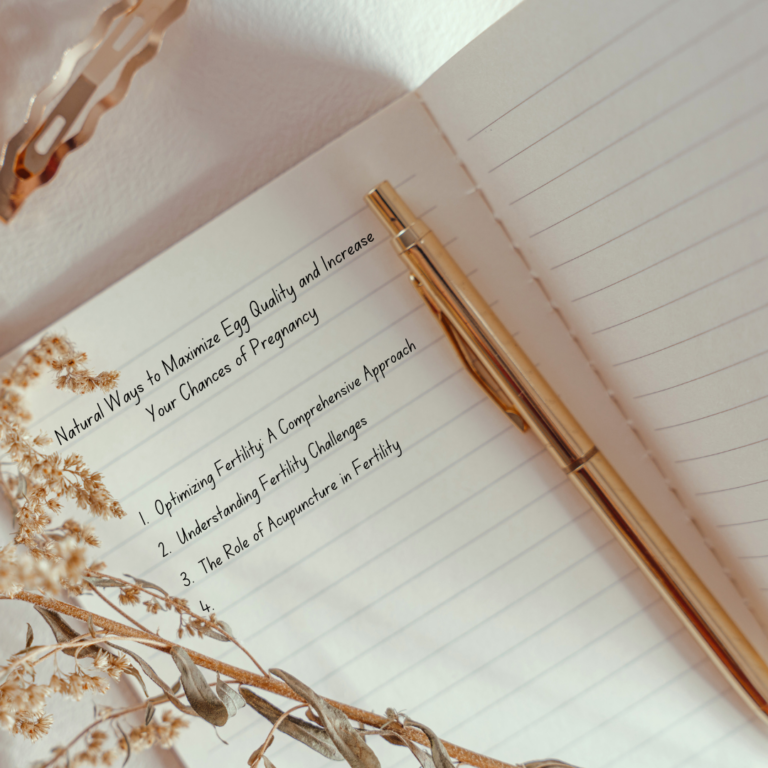 Natural Ways to Maximize Egg Quality and Increase
Your Chances of Pregnancy
1. Optimizing Fertility: A Comprehensive Approach
2. Understanding Fertility Challenges
3. The Role of Acupuncture in Fertility
4.